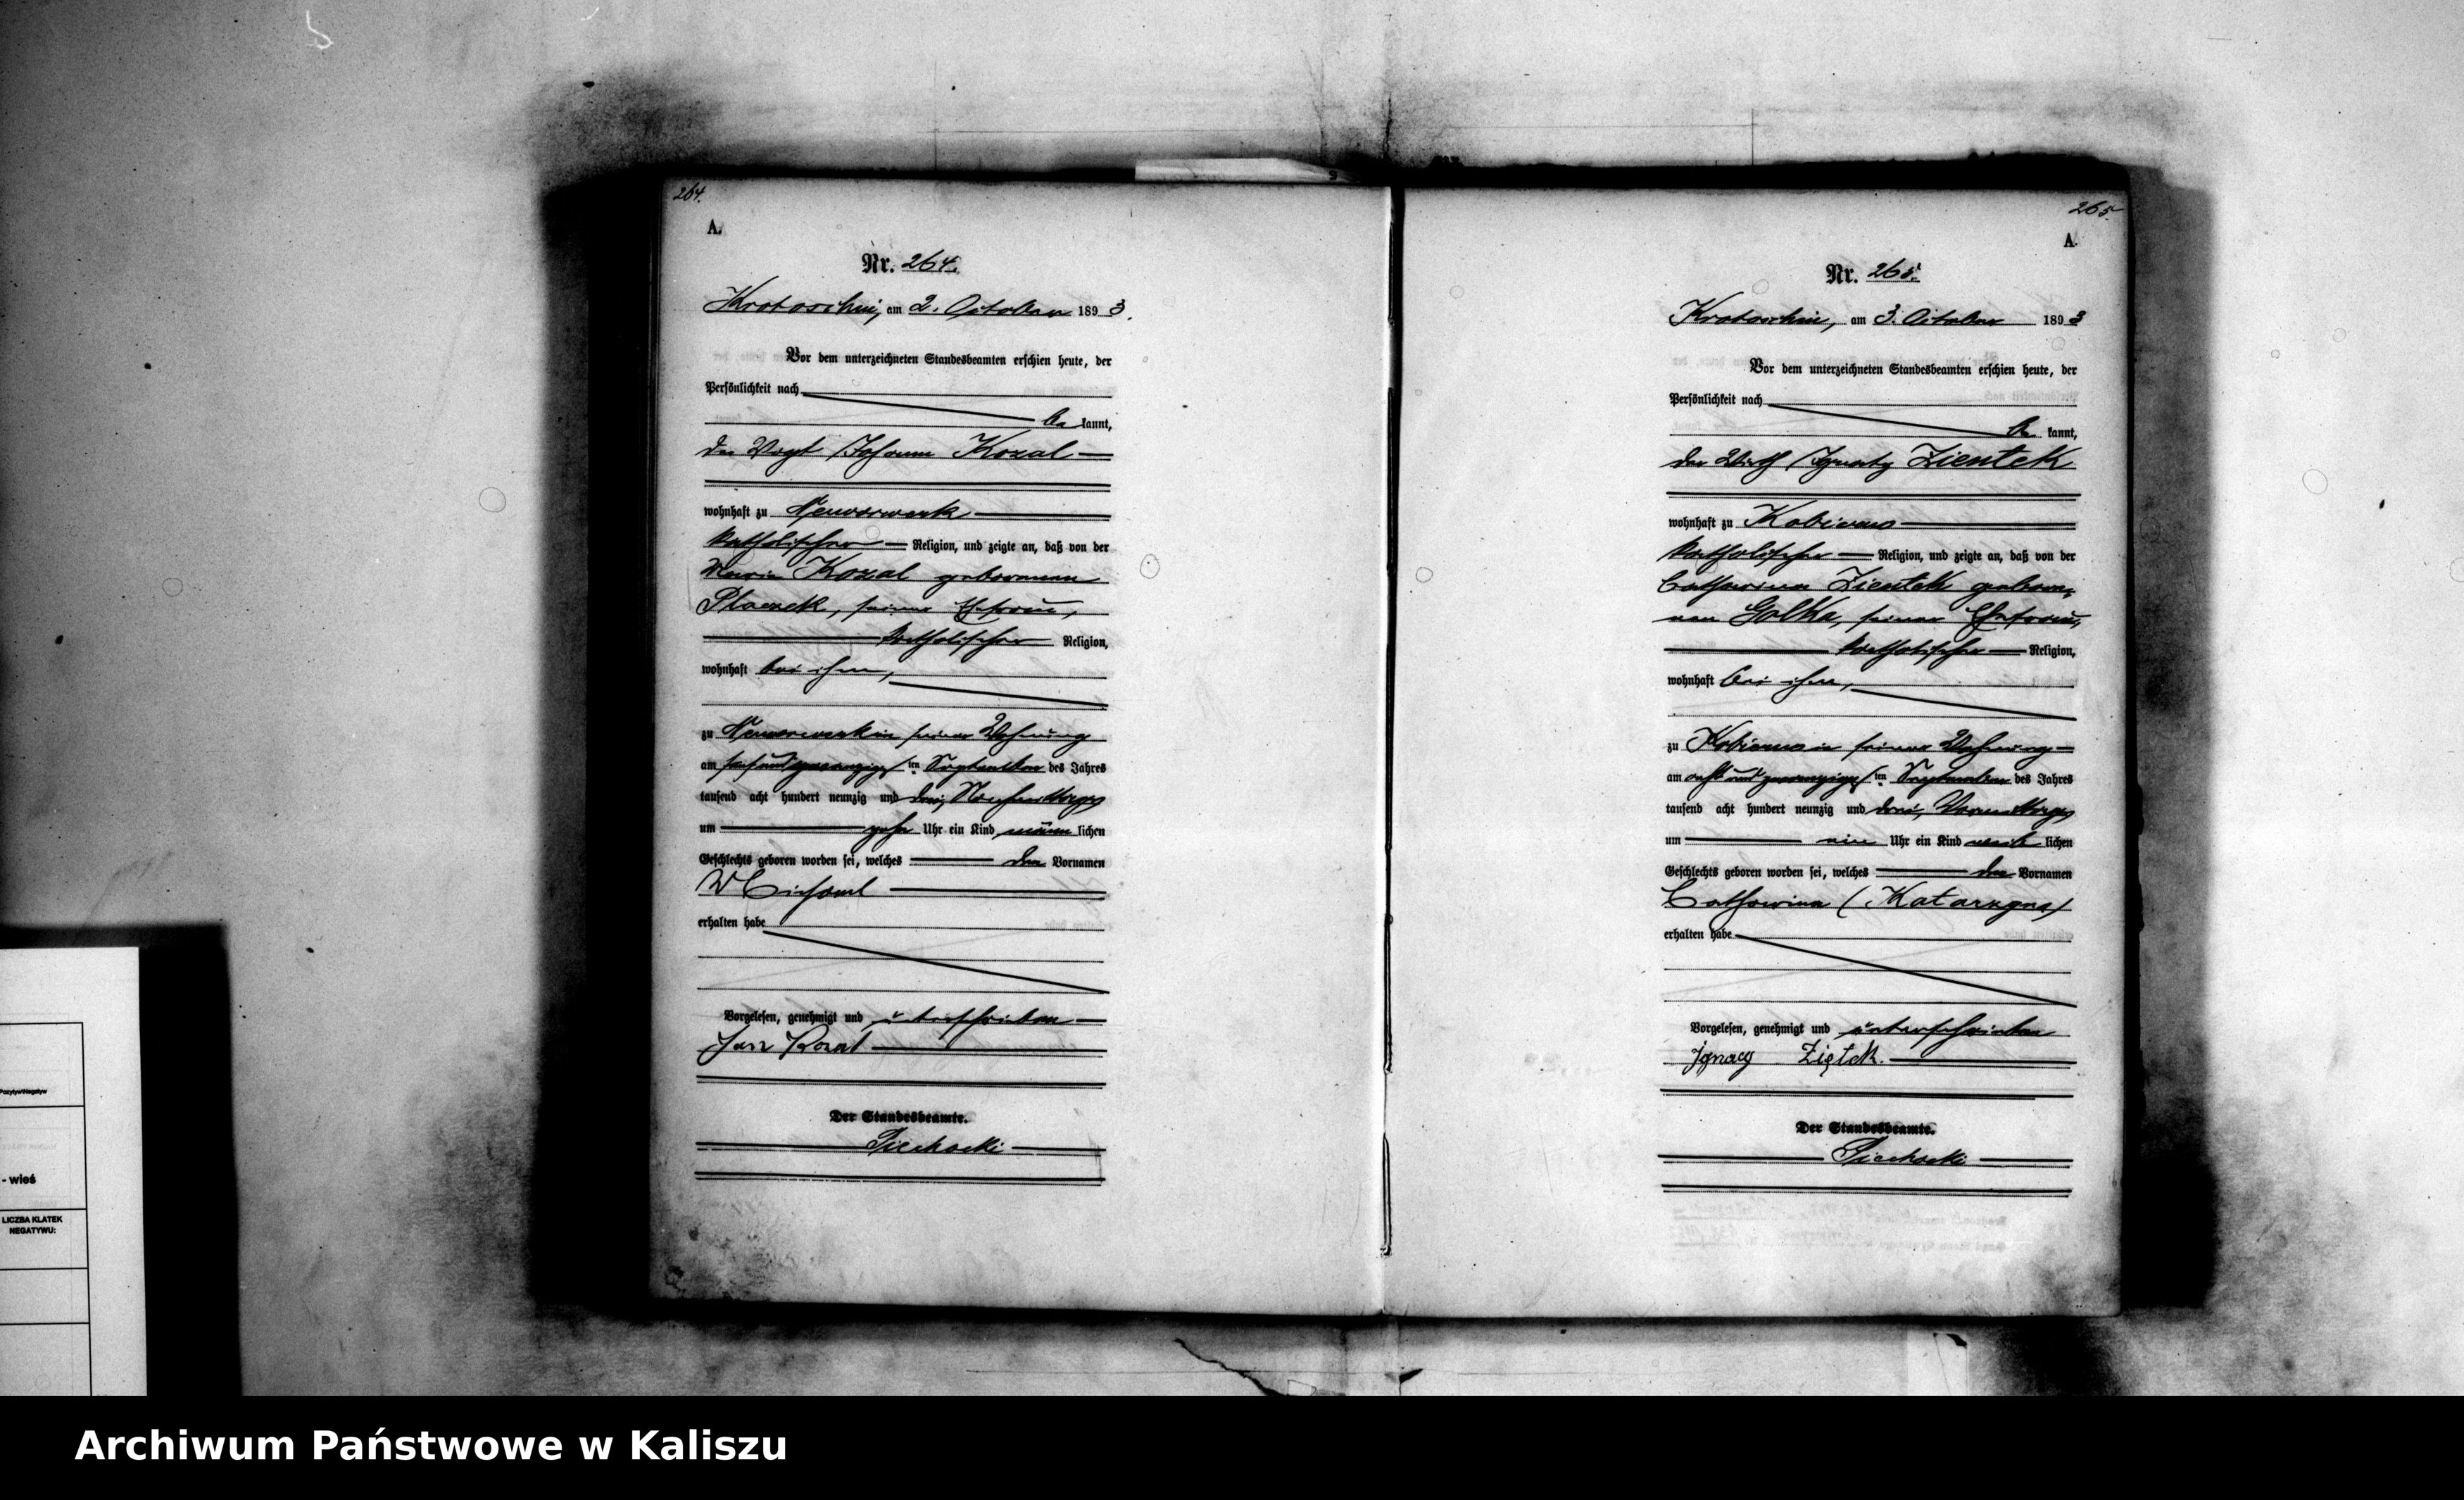 264.
A.
Nr. 264.
Krotoschin, am 2. October 1893.
Vor dem unterzeichneten Standesbeamten erschien heute, der
Persönlichkeit nach
be kannt,
der Vogt Johann Kozal
wohnhaft zu Neuvorwerk
katholischer Religion, und zeigte an, daß von der
Maria Kozal geborenen
Placzek, seiner Ehefrau,
katholischer Religion,
wohnhaft bei ihm,
zu Neuvorwerk in seiner Wohnung
am sechsundzwanzigsten September des Jahres
tausend acht hundert neunzig und drei, Nachmittags
um zehn Uhr ein Kind männlichen
Geschlechts geboren worden sei, welches den Vornamen
Michael
erhalten habe
Vorgelesen, genehmigt und unterschrieben
Jan Kozal
Der Standesbeamte.
Piechocki
265.
A.
Nr. 265.
Krotoschin, am 3. October 1893
Vor dem unterzeichneten Standesbeamten erschien heute, der
Persönlichkeit nach
be kannt,
der Wirth Ignatz Zientek
wohnhaft zu Kobierno
katholischer Religion, und zeigte an, daß von der
Catharina Zientek gebore-
nen Golka, seiner Ehefrau,
katholischer Religion,
wohnhaft bei ihm,
zu Kobierno in seiner Wohnung
am acht und zwanzigsten September des Jahres
tausend acht hundert neunzig und drei, Vormittags
um ein Uhr ein Kind weiblichen
Geschlechts geboren worden sei, welches den Vornamen
Catharina (Katarzyna)
erhalten habe
Vorgelesen, genehmigt und unterschrieben
Ignacy Ziętek.
Der Standesbeamte.
Piechocki
Pozytyw/Negatyw
- wieś
LICZBA KLATEK
NEGATYWU:
Archiwum Państwowe w Kaliszu